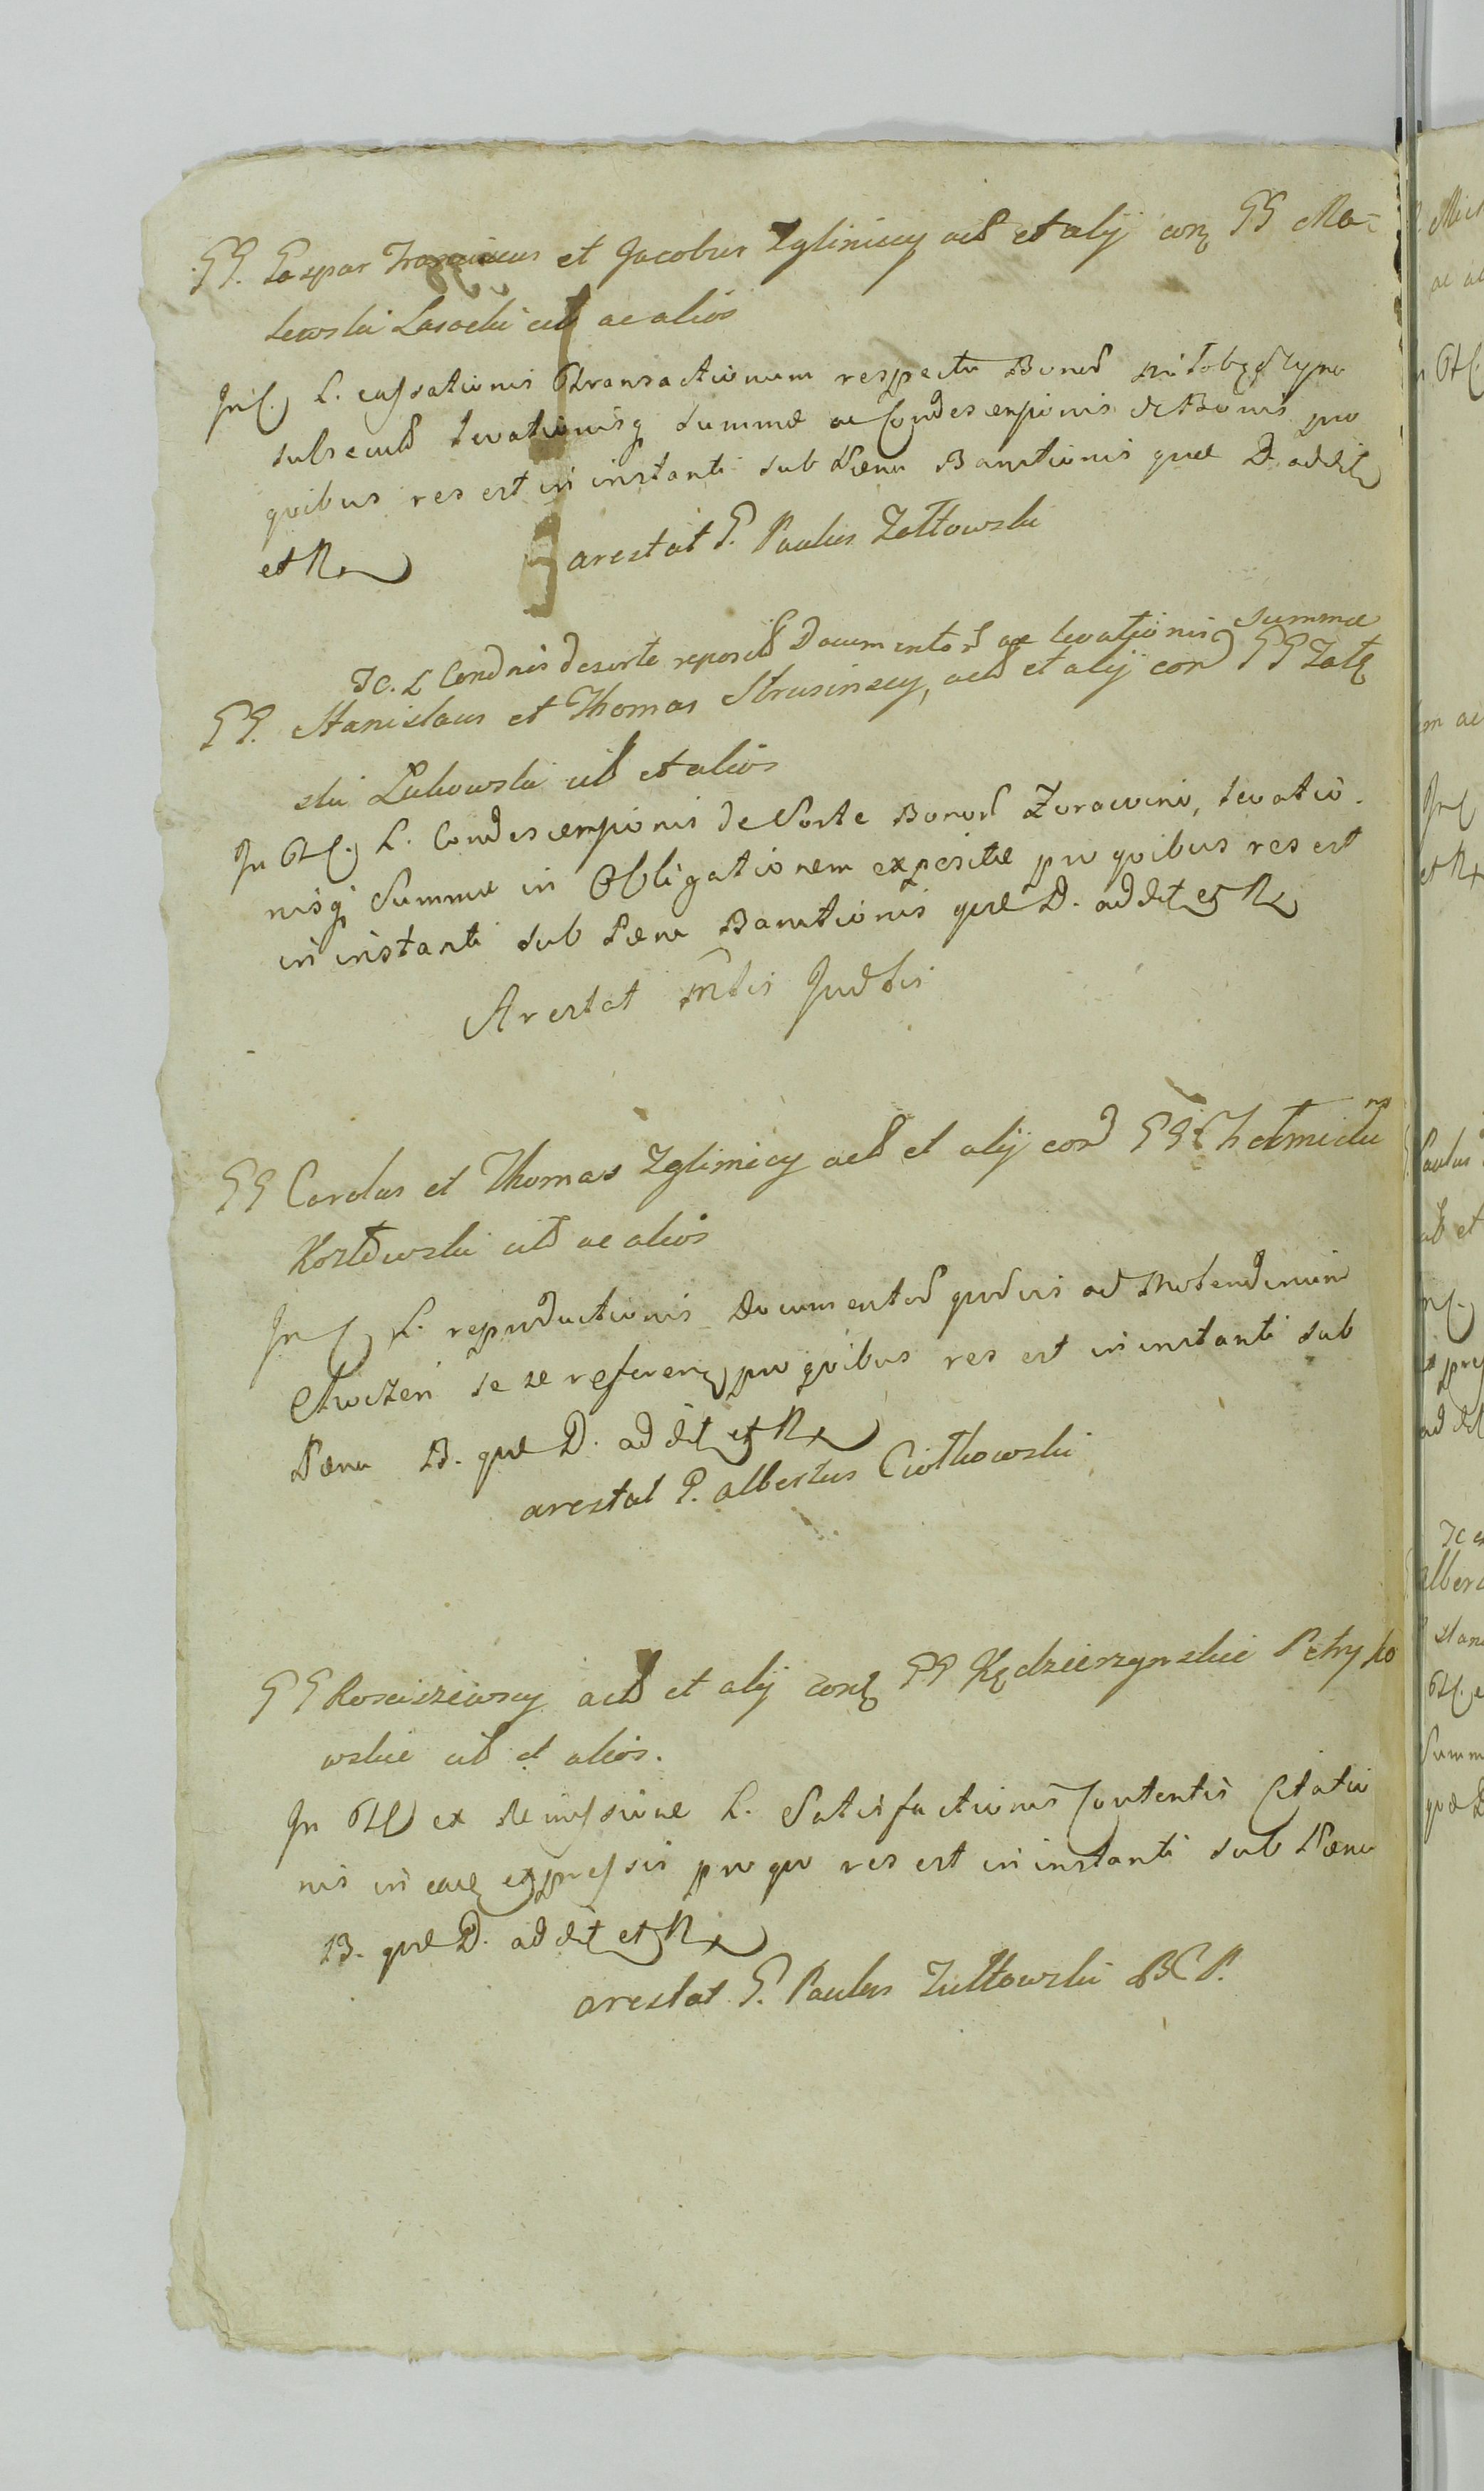 GG. Gaspar Franciscus et Jacobus Zgliniccy act et alij con GG Ma-
lewski Lasocki cit ac alios
In C. L. cassationis transactionum respectu Bonor
subsecut levationisq summæ ac Condescensionis de Bonis pro
quibus res est in instanti sub Pæna Banitionis quæ D. addit
et R
arestat G. Paulus Zołtowski
Tc. L Condnis deserte reposit Documentor ac levationis summæ
GG. Stanislaus et Thomas Strusinscy, act et alij con GG Zał
ski Lukowski cit et alios
In C. L. Condescensionis de Sorte Bonor Zorawino, levatio-
nisq Summæ in Obligationem expositæ pro quibus res est
in instanti sub Pæna Banitionis quæ D. addit et R
Arestat mtis Judtis
GG Carolus et Thomas Zgliniccy act et alij con GG Chełmicki
Kozłowski cit ac alios
In C L. reproductionis Documentor quovis ad Molendinum
se se referen pro quibus res est in instanti sub
Pæna B. quæ D. addit et R
arestat P. albertus Ciołkowski
GG Rosciszewscy act et alij con GG Kędzierzynskie Petryko
wskie cit et alios.
In C ex Remissione L. Satisfactionis Contentis Citatio
nis in eaq expressis pro quo res est in instanti sub Pæna
B. quæ D. addit et R
arestat G. Paulus Zułtowski BCP.